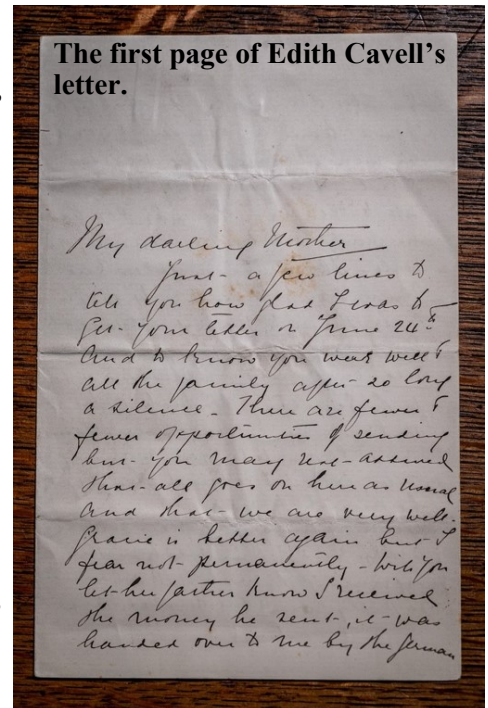 The first page of Edith Cavell’s
letter.
My darling Mother
Just - a few lines to
tell you how glad I was to
get - your letter on June 24th
and to know you were well &
all the family after - so long
a silence - There are fewer &
fewer opportunities of sending
but - you may rest - assured
that - all goes on here as usual
and that - we are very well -
Gracie is better again but - I
fear not - permanently - Will you
let - her father know I received
the money he sent -, it - was
handed over to me by the German